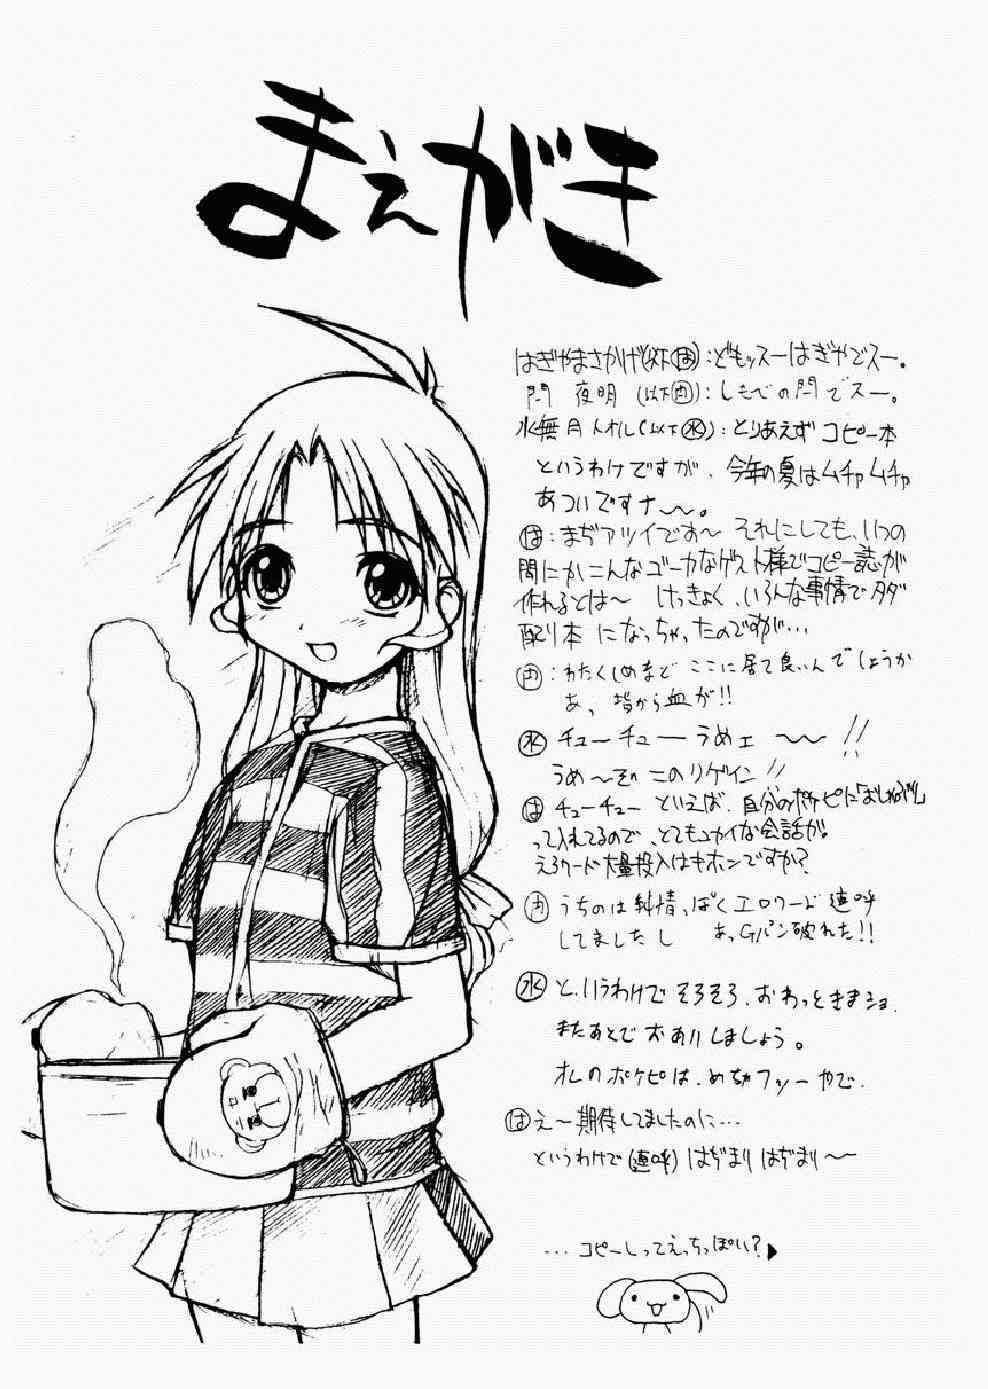 まえがき
はぎやまさかげ(以下は):どもッスーはぎやでスー。
閂 夜明 (以下内):しもべの閂でスー。
水無月トオル(以下水):とりあえずコピー本
というわけですが、今年の夏はムチャムチャ
あついですナ〜〜。
は:まぢアツイでお〜 それにしても、いつの
間にかこんなゴーカなゲスト様でコピー誌が
作れるとは〜 けっきょく、いろんな事情でタダ
配り本 になっちゃったのですが…
内:わたくしめまで ここに居て良いんでしょうか
あっ 指から血が!!
水 チューチュー うめェ 〜〜 !!
うめ〜ぞ このリゲイン!!
は チューチュー といえば、自分のポケピに
って入れてるので、とてもユカイな会話が!
えろワード大量投入はキホンですか?
内 うちのは純情っぽくエロワード連呼
してましたし あっGパン破れた!!
水 と、いうわけで そろそろ、おわっときまショ、
またあとで お あいしましょう。
オレの ポケピは、めちゃフツーやで、
は え〜期待してましたのに…
というわけで(連呼) はぢまり はぢまり〜
…コピーしってえっちっぽい?